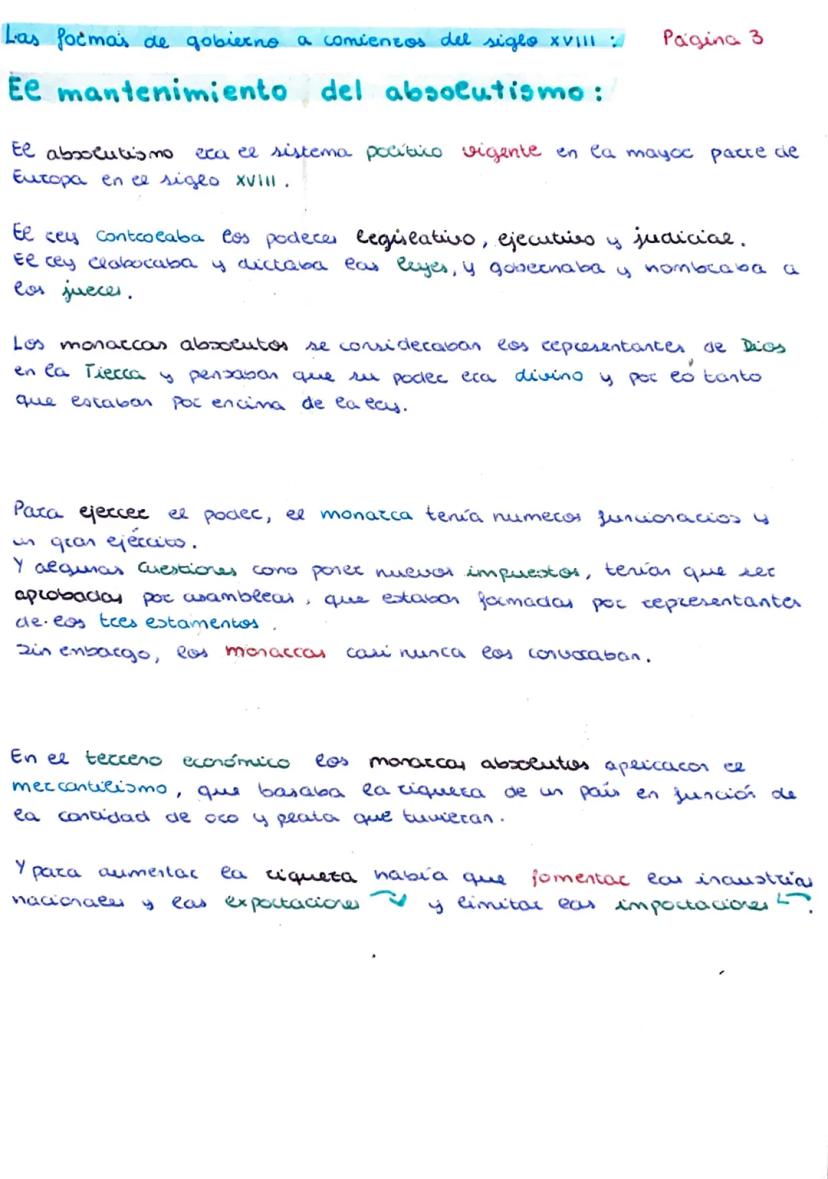 Las formas de gobierno a comienzos del siglo XVIII : Página 3
El mantenimiento del absolutismo :
El absolutismo era el sistema político vigente en la mayor parte de
Europa en el siglo XVIII.
El rey controlaba los poderes legislativo, ejecutivo y judicial.
El rey elaboraba y dictaba las leyes, y gobernaba y nombraba a
los jueces.
Los monarcas absolutos se consideraban los representantes de Dios
en la Tierra y pensaban que su poder era divino y por ló tanto
que estaban por encima de la ley.
Para ejercer el poder, el monarca tenía numeros funcionarios y
un gran ejército.
Y algunas cuestiones como poner nuevos impuestos, tenían que ser
aprobadas por asambleas, que estaban formadas por representantes
de los tres estamentos.
Sin enbargo, los monarcas casi nunca los convocaban.
En el terreno económico los monarcas absolutos aplicaron el
mercantilismo, que basaba la riqueza de un país en función de
la cantidad de oro y plata que tuvieran.
Y para aumentar la riqueza había que fomentar las industrias
nacionales y las exportaciones y limitar las importaciones.